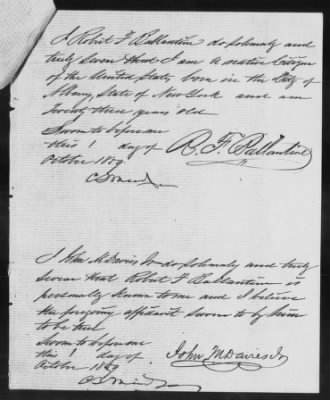 I Robert F Ballantine do solemnly and
truly Swear that I am a native Citizen
of the United States born in the City of
Albany, State of New York and am
Twenty three years old
Sworn to before me
this 1 day of R. F. Ballantine
October 1859
I John M Davies Jr do solemnly and truly
Swear that Robert F Ballantine is
personally known to me and I believe
the foregoing affidavit sworn to by him
to be true
Sworn to before me
this 1 day of John M Davies Jr
October 1859